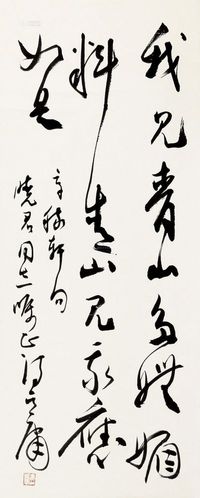 我见青山多妩媚
料青山见我应
如是
辛稼轩句
晓君同志嘱正